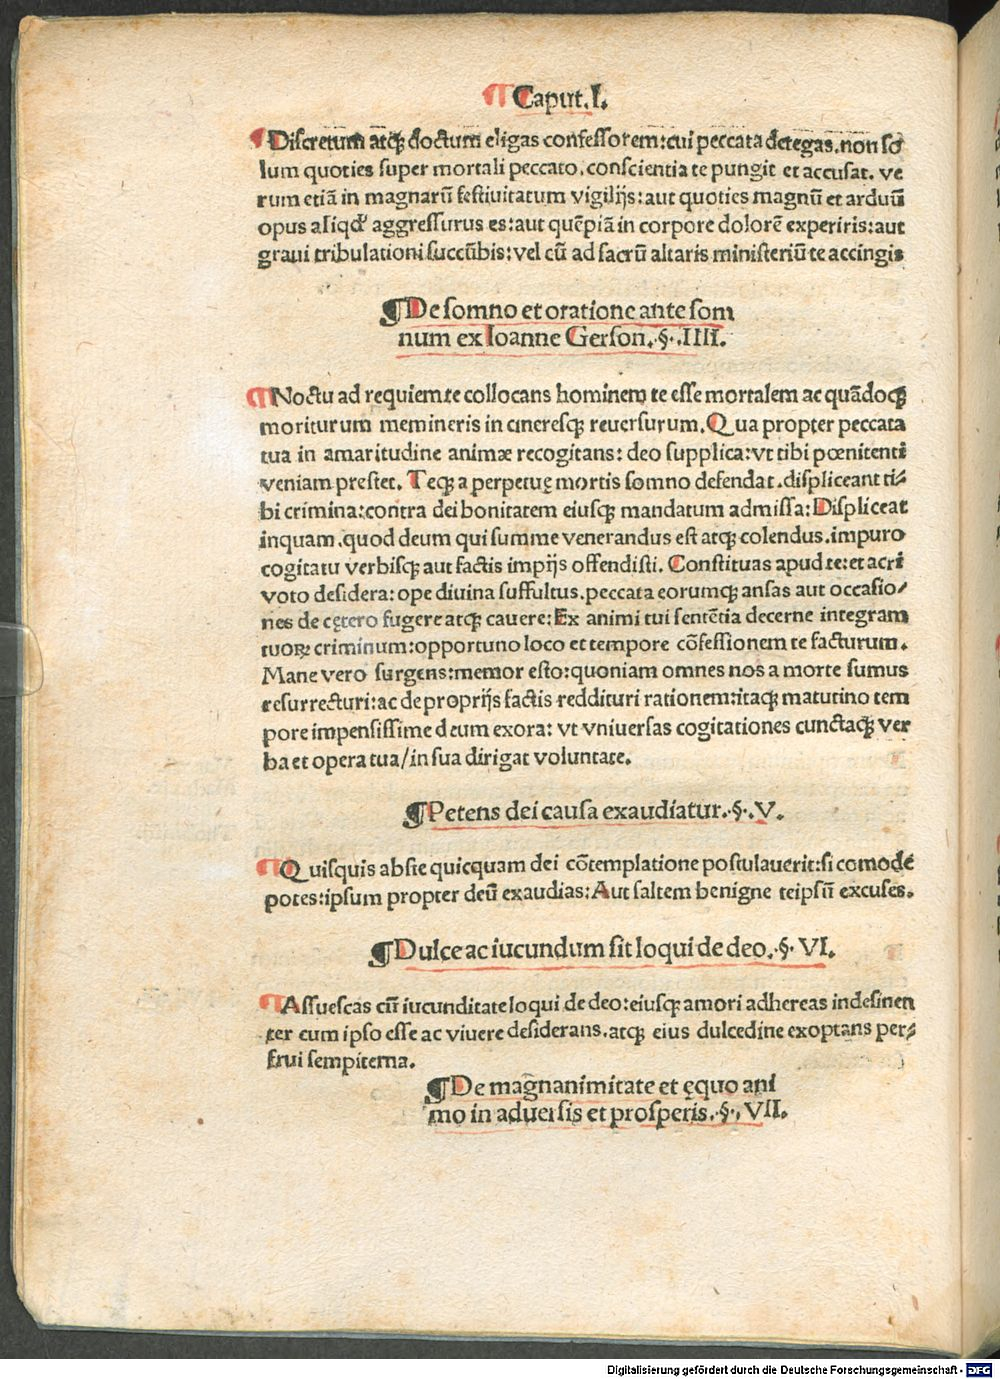 ¶Caput.I.
¶Discretum atqꝫ doctum eligas confessorem:cui peccata detegas.non so
lum quoties super mortali peccato.conscientia te pungit et accusat. ve
rum etiā in magnarū festiuitatum vigilijs:aut quoties magnū et arduū
opus aliqd' aggressurus es:aut quēpiā in corpore dolorē experiris:aut
graui tribulationi succūbis:vel cū ad sacrū altaris ministeriū te accingis
¶De somno et oratione ante som
num ex Ioanne Gerson.·§·.IIII.
¶Noctu ad requiem te collocans hominem te esse mortalem ac quādoqꝫ
moriturum memineris in cineresqꝫ reuersurum.Qua propter peccata
tua in amaritudine animæ recogitans: deo supplica:vt tibi pœnitenti
veniam prestet. Teqꝫ a perpetuę mortis somno defendat.displiceant ti⸗
bi crimina:contra dei bonitatem eiusqꝫ mandatum admissa:Displiceat
inquam.quod deum qui summe venerandus est atqꝫ colendus.impuro
cogitatu verbisqꝫ aut factis impijs offendisti. Constituas apud te:et acri
voto desidera: ope diuina suffultus.peccata eorumqꝫ ansas aut occasio/
nes de cętero fugere atqꝫ cauere:Ex animi tui sentētia decerne integram
tuoꝝ criminum:opportuno loco et tempore cōfessionem te facturum.
Mane vero surgens:memor esto:quoniam omnes nos a morte sumus
resurrecturi:ac de proprijs factis reddituri rationem:itaqꝫ matutino tem
pore impensissime deum exora: vt vniuersas cogitationes cunctaqꝫ ver
ba et opera tua/in sua dirigat voluntate.
¶Petens dei causa exaudiatur.·§·.V.
¶Quisquis abs te quicquam dei cōtemplatione postulauerit:si comode
potes:ipsum propter deū exaudias:Aut saltem benigne teipsū excuses.
¶Dulce ac iucundum sit loqui de deo.·§· VI.
¶Assuescas cū iucunditate loqui de deo:eiusqꝫ amori adhereas indesinen
ter cum ipso esse ac viuere desiderans.atqꝫ eius dulcedine exoptans per⸗
frui sempiterna.
¶De magnanimitate et ęquo ani
mo in aduersis et prosperis.·§·.VII.
Digitalisierung gefördert durch die Deutsche Forschungsgemeinschaft - DFG